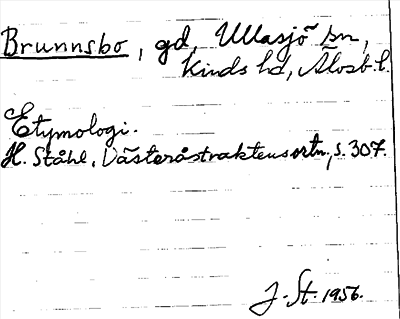 Brunnsbo, gd, Ullasjö sn,
Kinds hd, Älvsb. l.
Etymologi.
H. Ståhl, Västeråstraktens ortn, s. 307.
J. St. 1956.